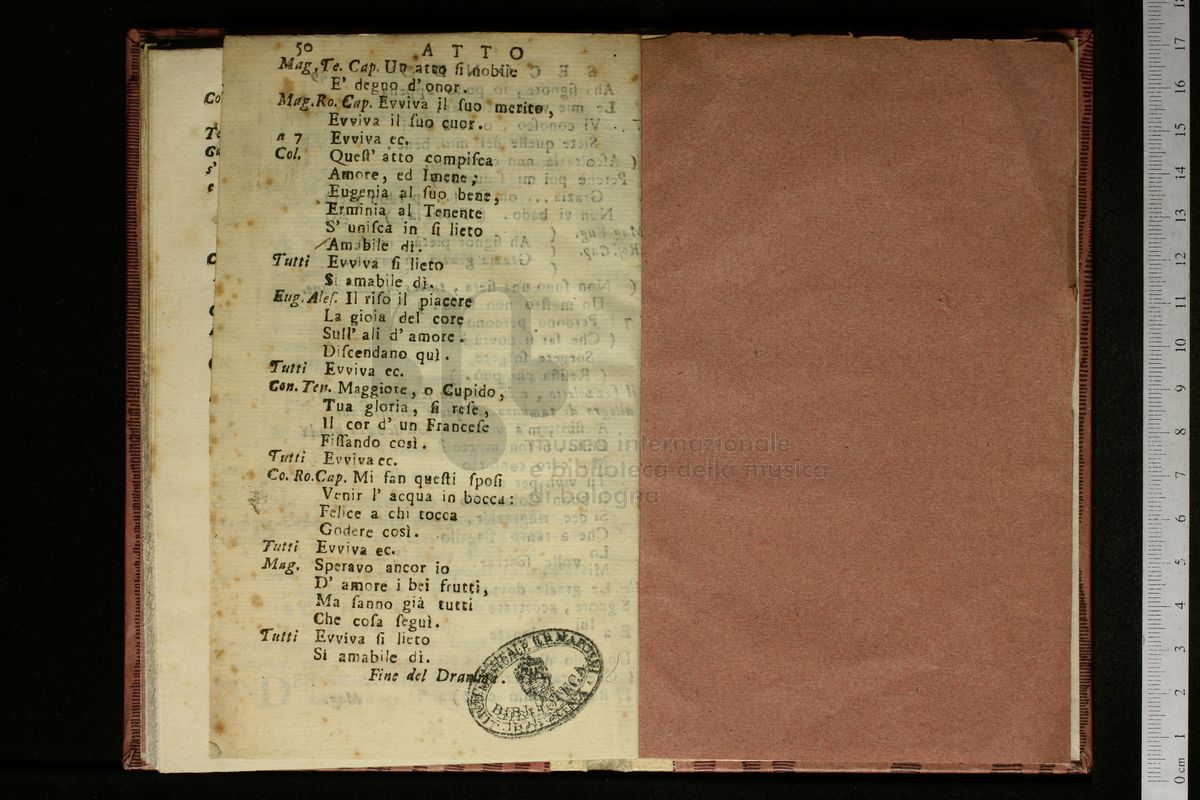 50 ATTO
Mag. Te. Cap. Un atto ſi nobile
E' degno d' onor.
Mag. Ro. Cap. Evviva il ſuo merito,
Evviva il ſuo cuor.
a 7 Evviva ec.
Col. Queſt' atto compiſca
Amore, ed Imene;
Eugenia al ſuo bene,
Erminia al Tenente
S' uniſca in ſi lieto
Amabile dì.
Tutti Evviva ſi lieto
Si amabile dì.
Eug. Aleſ. Il riſo il piacere
La gioia del core
Sull' ali d' amore.
Diſcendano quì.
Tutti Evviva ec.
Con. Ten. Maggiore, o Cupido,
Tua gloria, ſi reſe,
Il cor d' un Franceſe
Fiſſando così.
Tutti Evviva ec.
Co. Ro. Cap. Mi fan queſti ſpoſi
Venir l' acqua in bocca:
Felice a chi tocca
Godere così.
Tutti Evviva ec.
Mag. Speravo ancor io
D' amore i bei frutti,
Ma ſanno già tutti
Che coſa ſeguì.
Tutti Evviva ſi lieto
Si amabile dì.
Fine del Dramma.
museo internazionale
e biblioteca della musica
di bologna
BIBLIOTECA
0 cm 1 2 3 4 5 6 7 8 9 10 11 12 13 14 15 16 17